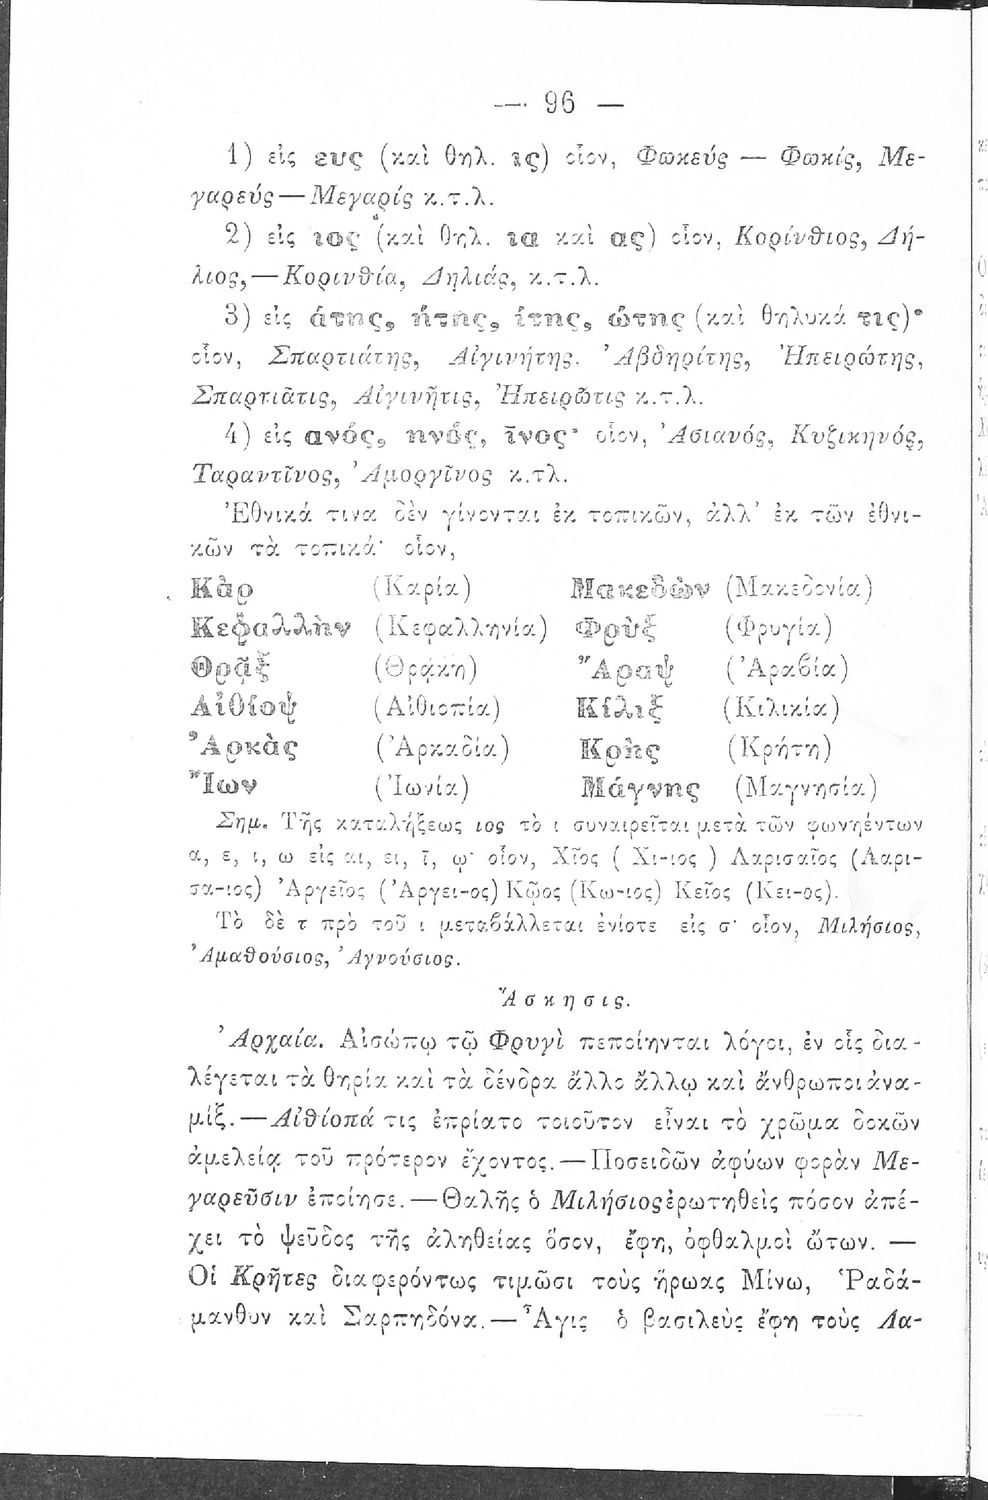 — 96 —
1) εἰς ευς (καὶ θηλ. ις) οἷον, Φωκεύς — Φωκίς, Με-
γαρεύς — Μεγαρίς κ.τ.λ.
2) εἰς ιος (καὶ θηλ. ια καὶ ας) οἷον, Κορίνθιος, Δή-
λιος, — Κορινθία, Δηλιάς, κ.τ.λ.
3) εἰς άτης, ήτης, ίτης, ώτης (καὶ θηλυκά τις)·
οἷον, Σπαρτιάτης, Αἰγινήτης. Ἀβδηρίτης, Ἠπειρώτης,
Σπαρτιᾶτις, Αἰγινῆτις, Ἠπειρῶτις κ.τ.λ.
4) εἰς ανός, ηνός, ῖνος· οἷον, Ἀσιανός, Κυζικηνός,
Ταραντῖνος, Ἀμοργῖνος κ.τλ.
Ἐθνικά τινα δὲν γίνονται ἐκ τοπικῶν, ἀλλ' ἐκ τῶν ἐθνι-
κῶν τὰ τοπικά· οἷον,
Κὰρ (Καρία) Μακεδὼν (Μακεδονία)
Κεφαλλὴν (Κεφαλληνία) Φρὺξ (Φρυγία)
Θρᾷξ (Θράκη) Ἄραψ (Ἀραβία)
Αἰθίοψ (Αἰθιοπία) Κίλιξ (Κιλικία)
Ἀρκὰς (Ἀρκαδία) Κρὴς (Κρήτη)
Ἴων (Ἰωνία) Μάγνης (Μαγνησία)
Σημ. Τῆς καταλήξεως ιος τὸ ι συναιρεῖται μετὰ τῶν φωνηέντων
α, ε, ι, ω εἰς αι, ει, ῑ, ῳ· οἷον, Χῖος ( Χι-ιος ) Λαρισαῖος (Λαρι-
σα-ιος) Ἀργεῖος (Ἀργει-ος) Κῷος (Κω-ιος) Κεῖος (Κει-ος).
Τὸ δὲ τ πρὸ τοῦ ι μεταβάλλεται ἐνίοτε εἰς σ· οἷον, Μιλήσιος,
Ἀμαθούσιος, Ἀγνούσιος.
Ἄσκησις.
Ἀρχαία. Αἰσώπῳ τῷ Φρυγὶ πεποίηνται λόγοι, ἐν οἷς δια-
λέγεται τὰ θηρία καὶ τὰ δένδρα ἄλλο ἄλλῳ καὶ ἄνθρωποι ἀνα-
μίξ. — Αἰθίοπά τις ἐπρίατο τοιοῦτον εἶναι τὸ χρῶμα δοκῶν
ἀμελείᾳ τοῦ πρότερον ἔχοντος. — Ποσειδῶν ἀφύων φορὰν Με-
γαρεῦσιν ἐποίησε. — Θαλῆς ὁ Μιλήσιος ἐρωτηθεὶς πόσον ἀπέ-
χει τὸ ψεῦδος τῆς ἀληθείας ὅσον, ἔφη, ὀφθαλμοὶ ὤτων. —
Οἱ Κρῆτες διαφερόντως τιμῶσι τοὺς ἥρωας Μίνω, Ῥαδά-
μανθυν καὶ Σαρπηδόνα. — Ἆγις ὁ βασιλεὺς ἔφη τοὺς Λα-